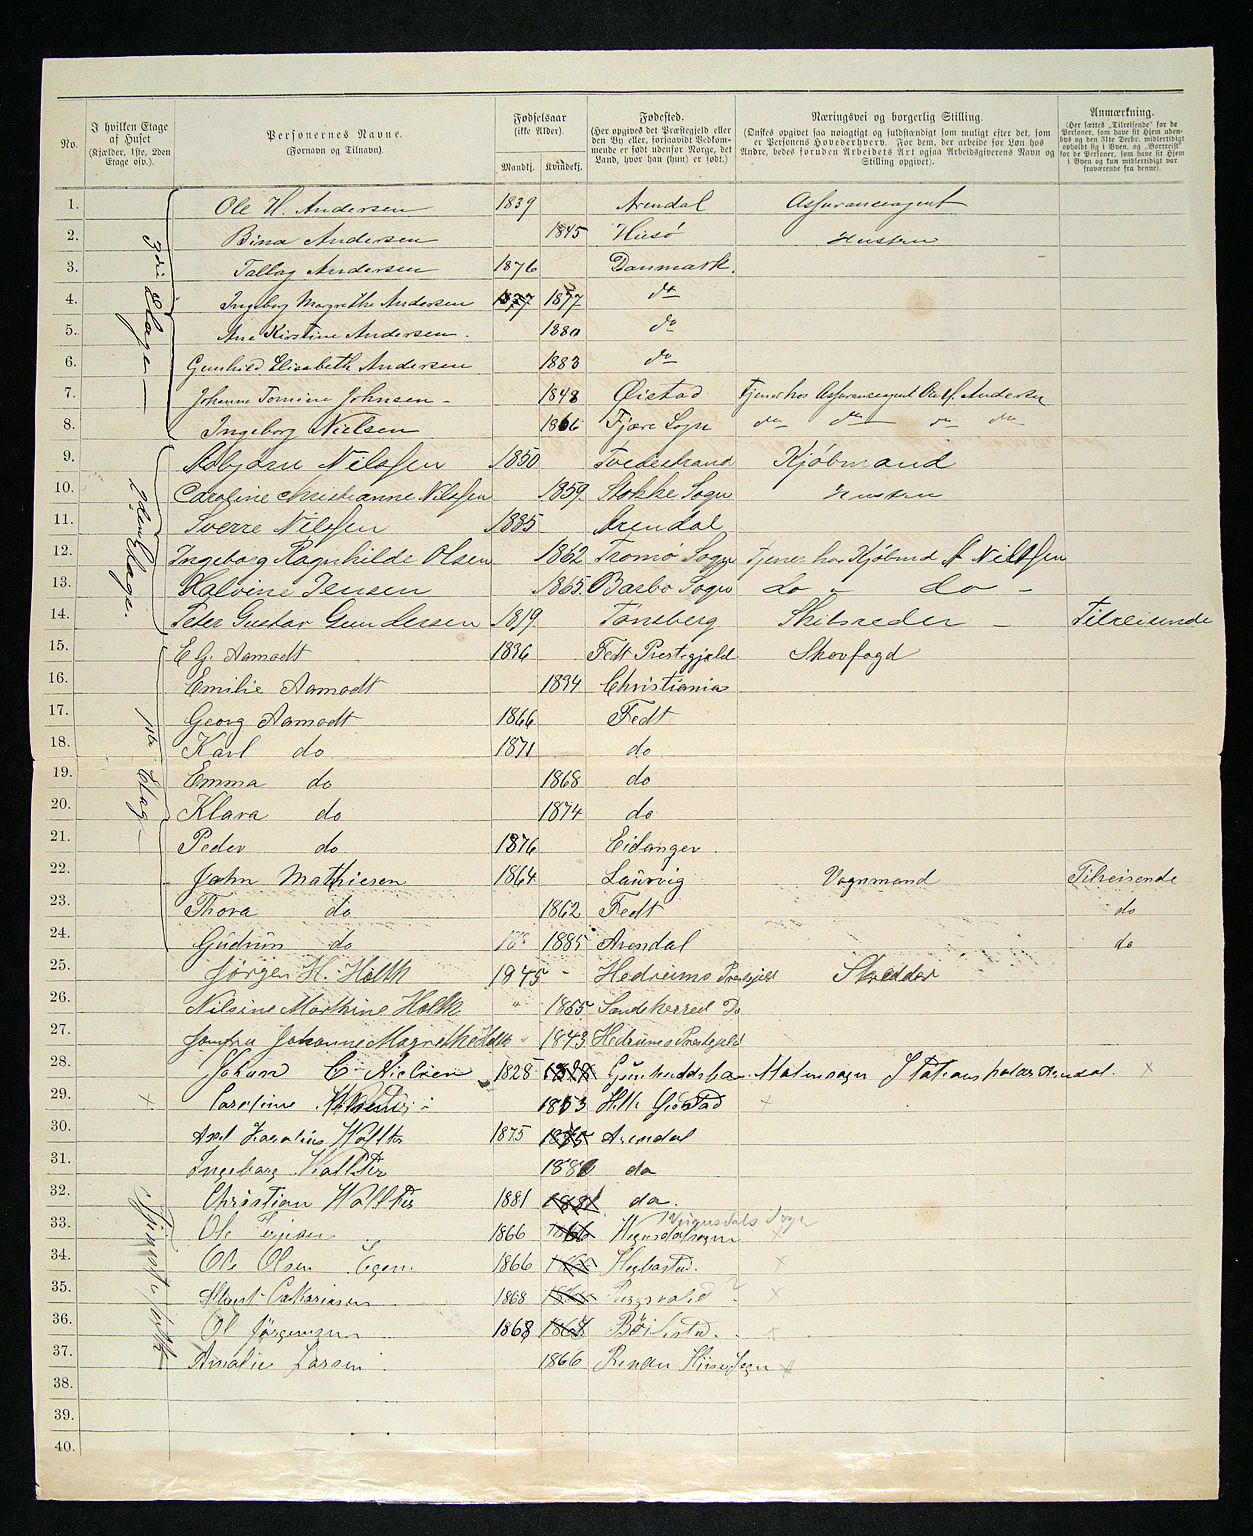 No. | I hvilken Etage af Huset (Kjælder, 1ste, 2den Etage osv.). | Personernes Navne. (Fornavn og Tilnavn). | Fødselsaar (ikke Alder). Mandkj. | Kvindekj. | Fødested. (Her opgives det Præstegjeld eller den By eller, forsaavidt Vedkommende er født udenfor Norge, det Land, hvor han (hun) er født.) | Næringsvei og borgerlig Stilling. (Ønskes opgivet saa nøiagtigt og fuldstændigt som muligt efter det, som er Personens Hovederhverv. For dem, der arbeide for Løn hos Andre, bedes foruden Arbeidets Art ogsaa Arbeidsgiverens Navn og Stilling opgivet). | Anmærkning. (Her sættes „Tilreisende“ for de Personer, som have sit Hjem udenbys og den 31te Decbr. midlertidigt opholdt sig i Byen, og „Bortreist“ for de Personer, som have sit Hjem i Byen og kun midlertidigt var fraværende fra denne).
3die Etage
1. Ole H. Andersen 1839 Arendal Assuranceagent
2. Bina Andersen 1845 Hisø Hustru
3. Andersen 1876 Danmark.
4. Ingeborg Margrethe Andersen 1877 1877 do
5. Ane Kirstine Andersen. 1880 do
6. Gunhild Elisabeth Andersen 1883 do
7. Johanne Tomine Johnsen - 1848 Øiestad Tjener hos Assuranceagent Ole H. Andersen
8. Ingeborg Nielsen 1866 Fjære Sogn do do do do
2den Etage.
9. Asbjørn Nilssen 1850 Tvedestrand Kjøbmand
10. Caroline Christianne Nilssen 1859 Stokke Sogn Hustru
11. Sverre Nilssen 1885 Arendal
12. Ingeborg Ragnhilde Olsen 1862 Tromø Sogn Tjener hos Kjøbmd A Nilssen
13. Halvine Jensen 1865 Barbo Sogn do " do -
14. Peter Gustav Gundersen 1819 Tønsberg Skibsreder - Tilreisende
1ste Etag -
15. E G. Aamodt 1836 Fedt Prestegjeld Skovfogd
16. Emilie Aamodt 1834 Christiania
17. Georg Aamodt 1866 Fedt
18. Karl do 1871 do
19. Emma do 1868 do
20. Klara do 1874 do
21. Peder do 1876 Eidanger.
22. John Mathiesen 1864 Laurvig Vognmand Tilreisende
23. Thora do 1862 Fedt do
24. Gudrun do 1885 Arendal do
25. Jørgen H. Holth 1845 - Hedrums Prestgjeld Skrædder
26. Nilsine Marthine Holth " 1865 Sandeherred Do
27. Jomfru Johanne Magrethe Holth " 1843 Hedrums Prestgjeld
28. Johan C. Nielsen 1825 Arendal. x
29. x Caroline 1853 x
30. Axel Wolther 1875 1875 Arendal
31. Ingeborg Wolther 188 do
32. Christian Wolther 1881 1881 do.
33. Ole 1866 1866 Sogn x
34. Ole Olsen 1866 x
35. 1868 ? x
36. 1868 1868 x
37. Amalie Larsen 1866 Sogn x
38.
39.
40.